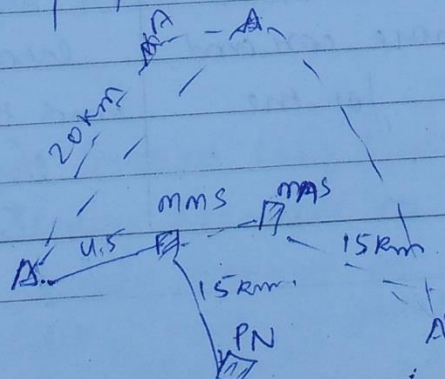 A
20km
MMS
MAS
4.5
A
15km
15km.
PN
A